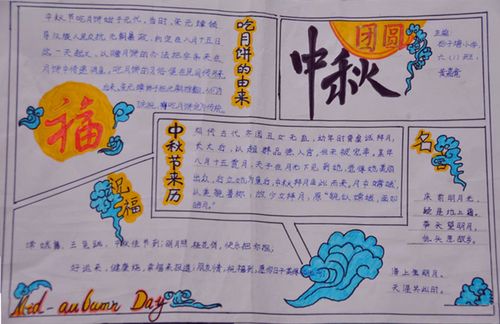 中秋节吃月饼始于元代。当时，朱元璋领
导汉族人民反抗元朝暴政，约定在八月十五日
这一天起义，以
月饼中传递消息。吃月饼的习俗便在民间传开
来。
吃月饼的由来
中秋
团圆
主编：
六（八）班：
福
中秋节来历
相传古代齐国丑女无盐，幼年时曾虔诚拜月，
长大后，以超群品德入宫，但未被宠幸。某年
八月十五赏月，天子在月光下见到她，觉得她美丽
出众，后立她为皇后，中秋拜月由此而来。月中嫦娥，
以美貌著称，故少女拜月，愿“貌似嫦娥，面如
皓月”。
名言
床前明月光，
疑是地上霜。
举头望明月，
低头思故乡。
海上生明月，
天涯共此时。
祝福
嫦娥舞，玉兔跳，中秋佳节到；明月照，桂花俏，快乐把你抱；
好运来，健康绕，幸福来报道；朋友情，祝福到，愿你日子美
Mid-autumn Day